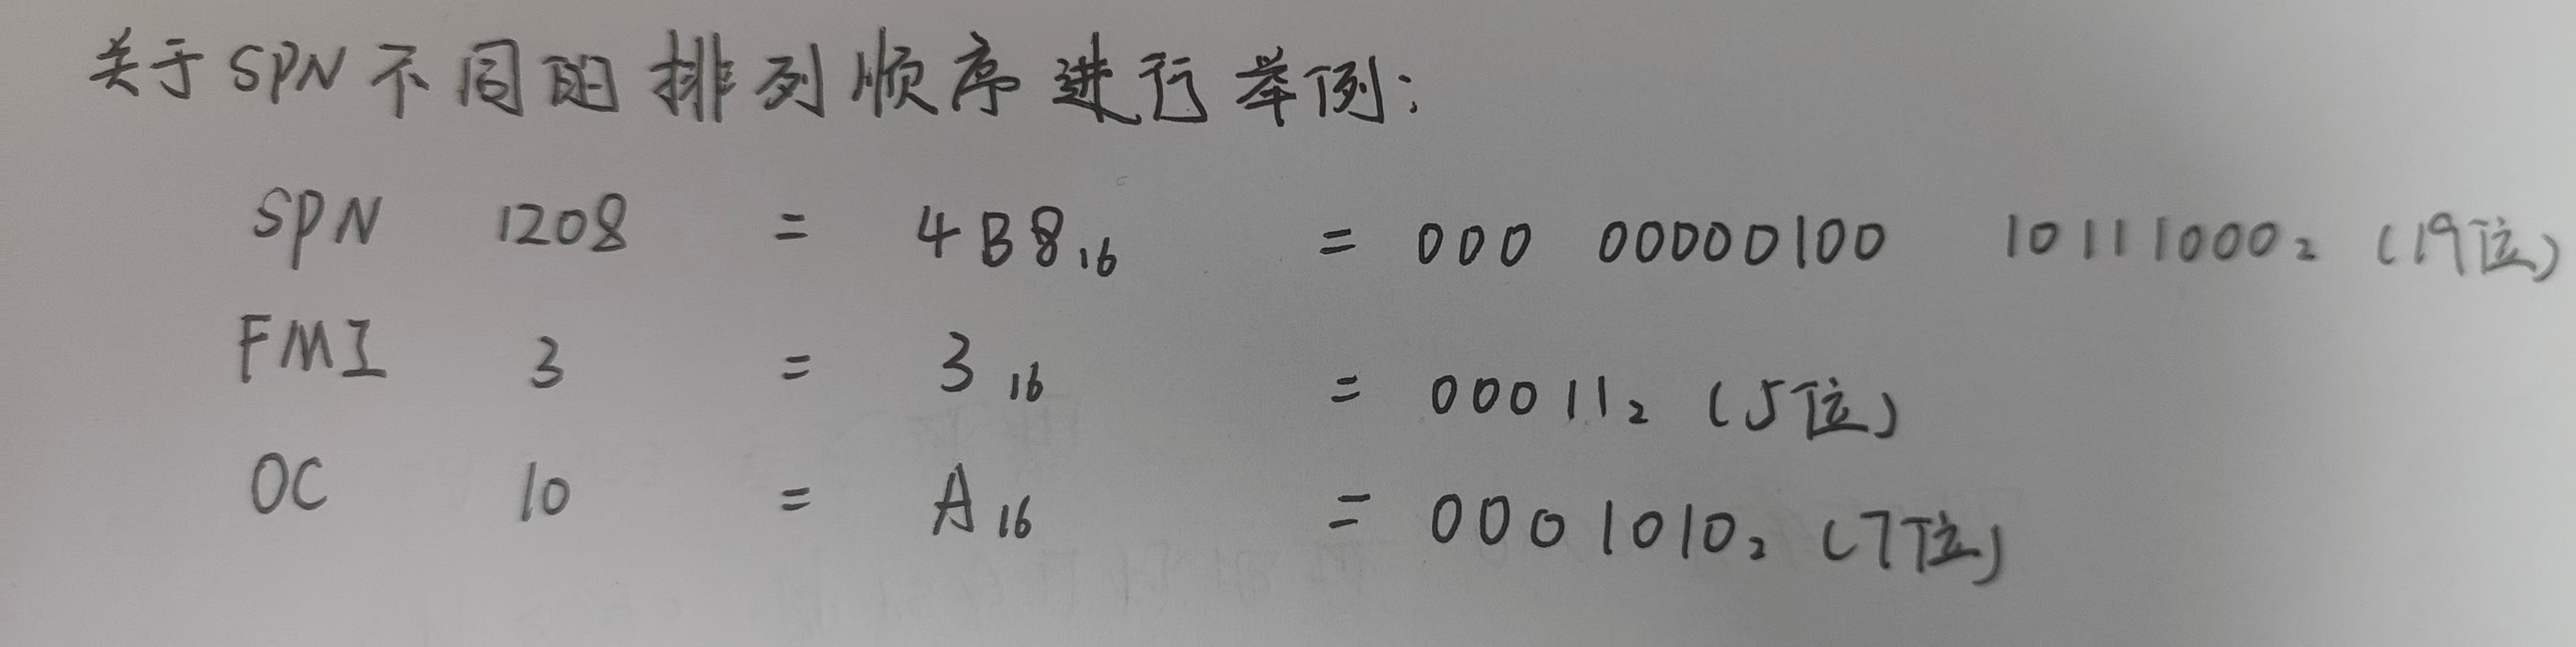 关于SPN不同的排列顺序进行举例：
SPN 1208 = 4B8₁₆ = 000 00000100 10111000₂ (19位)
FMI 3 = 3₁₆ = 00011₂ (5位)
OC 10 = A₁₆ = 0001010₂ (7位)